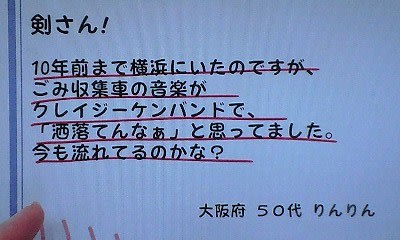 剣さん!
10年前まで横浜にいたのですが、
ごみ収集車の音楽が
クレイジーケンバンドで、
「洒落てんなぁ」と思ってました。
今も流れてるのかな?
大阪府 50代 りんりん